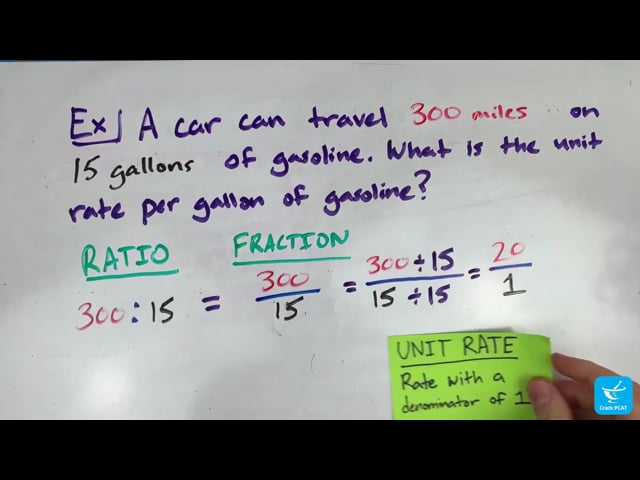 Ex] A car can travel 300 miles on
15 gallons of gasoline. What is the unit
rate per gallon of gasoline?
RATIO
FRACTION
300 : 15 = 300/15 = 300 ÷ 15/15 ÷ 15 = 20/1
UNIT RATE
Rate with a
denominator of 1
Crack PCAT